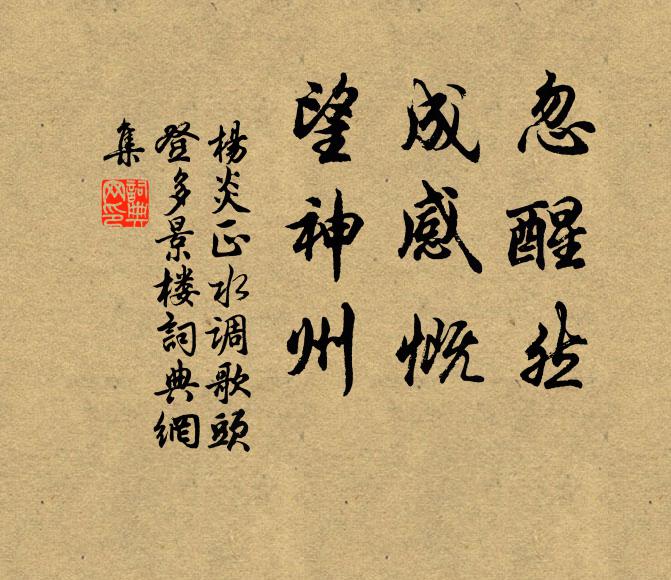 忽醒然
成感慨
望神州
楊炎正水调歌頭
登多景楼詞典網
集
詞典网印